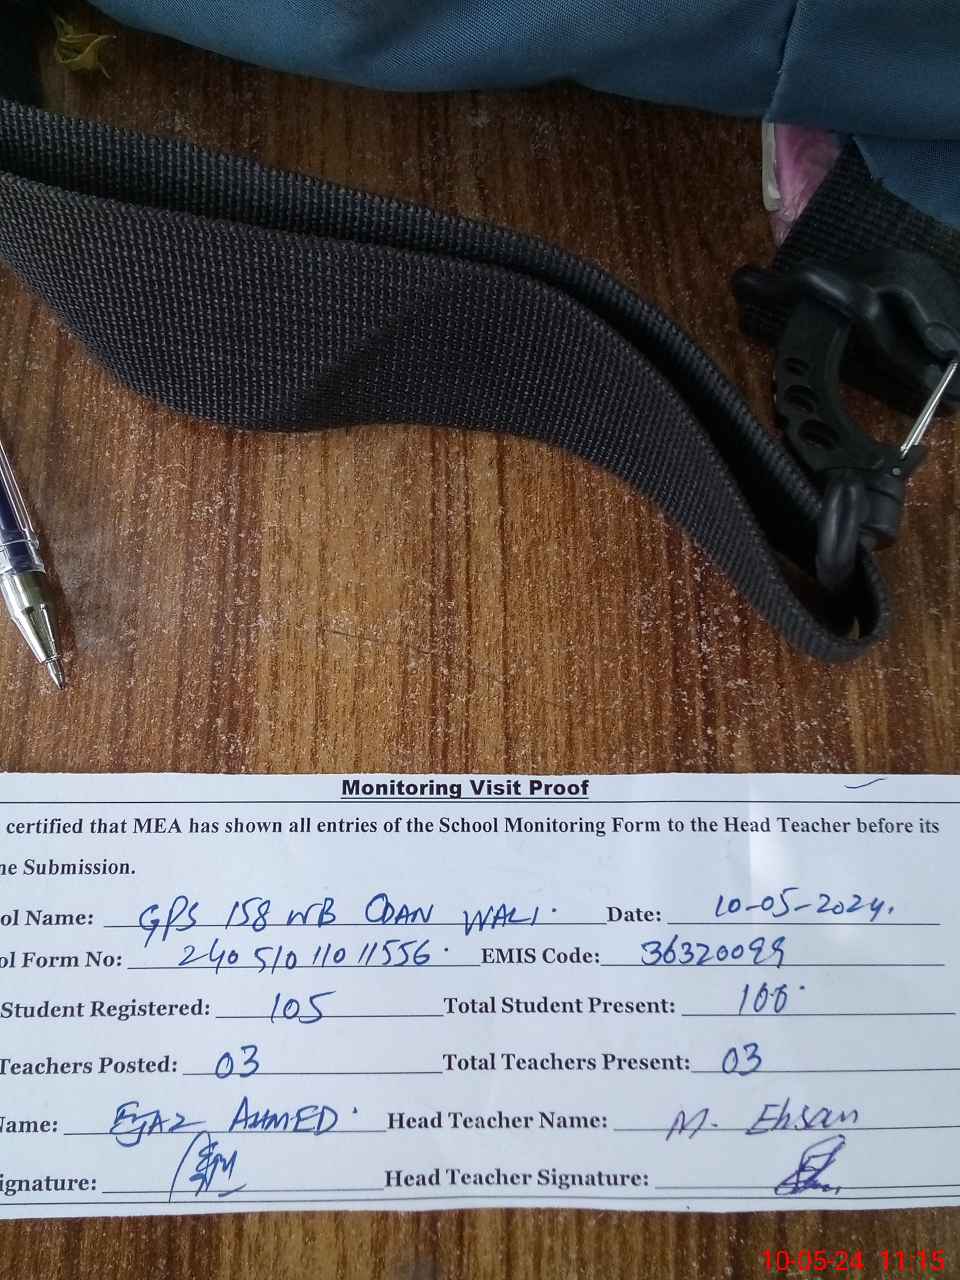 Monitoring Visit Proof
certified that MEA has shown all entries of the School Monitoring Form to the Head Teacher before its
ne Submission.
ol Name: GPS 158 WB ODAN WALI. Date: 10-05-2024.
ol Form No: 240 510 110 11556. EMIS Code: 36320099
Student Registered: 105 Total Student Present: 100
Teachers Posted: 03 Total Teachers Present: 03
Name: EJAZ AHMED. Head Teacher Name: M. Ehsan
ignature: Head Teacher Signature:
10-05-24 11:15